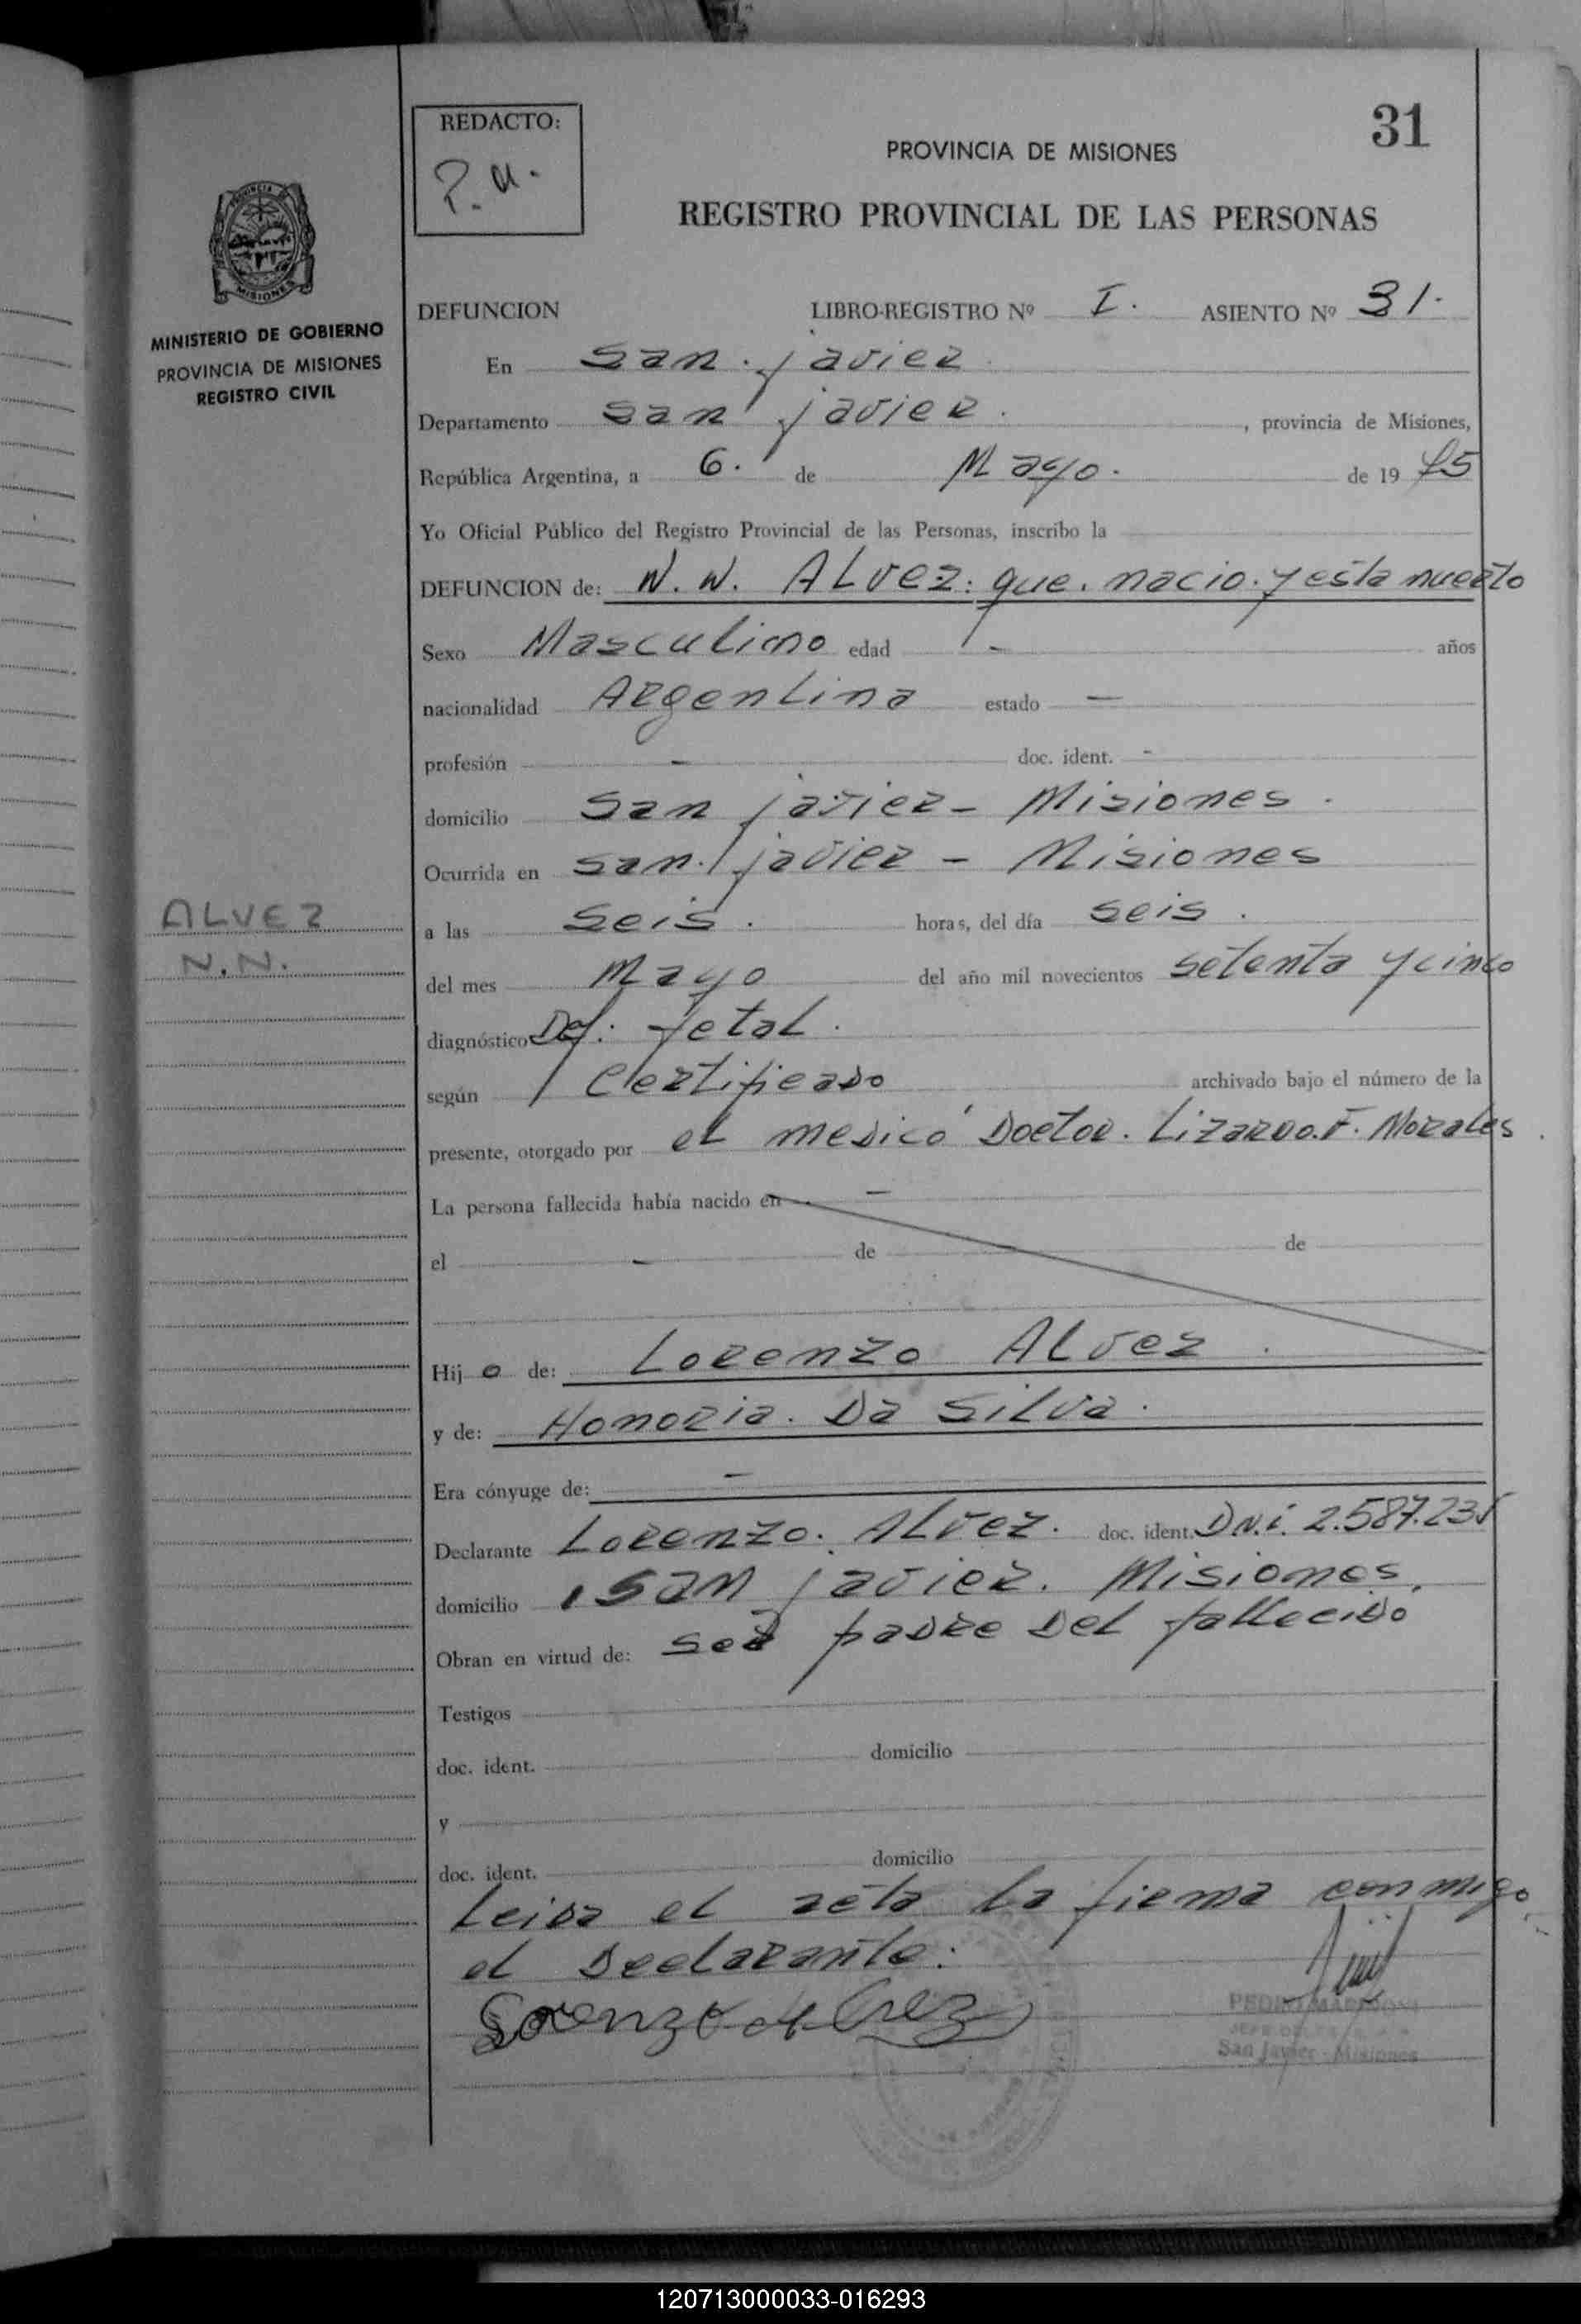 REDACTO:
P. M.
31
PROVINCIA DE MISIONES
REGISTRO PROVINCIAL DE LAS PERSONAS
MISIONES
MINISTERIO DE GOBIERNO
PROVINCIA DE MISIONES
REGISTRO CIVIL
DEFUNCION LIBRO-REGISTRO Nº I. ASIENTO Nº 31.
En San Javier
Departamento San Javier. , provincia de Misiones,
República Argentina, a 6. de Mayo. de 19 75
Yo Oficial Público del Registro Provincial de las Personas, inscribo la
DEFUNCION de: N. N. ALvez. que. nacio. y esta muerto
Sexo Masculino edad - años
nacionalidad Argentina estado —
profesión - doc. ident. -
domicilio San Javier - Misiones.
Ocurrida en San Javier - Misiones
a las Seis. horas, del día seis.
ALVEZ
N.N.
del mes Mayo del año mil novecientos setenta y cinco
diagnóstico Def. fetal.
según Certificado archivado bajo el número de la
presente, otorgado por el medico Doctor. Lizardo. F. Morales
La persona fallecida había nacido en —
el - de de
Hij o de: Lorenzo ALvez
y de: Honoria. Da Silva.
Era cónyuge de: -
Declarante Lorenzo. ALvez. doc. ident. D.N.i. 2.587.235
domicilio San Javier. Misiones.
Obran en virtud de: ser padre del fallecido
Testigos
doc. ident. domicilio
y
doc. ident. domicilio
Leida el acta la firma conmigo
el declarante.
Lorenzo Alvez
San Javier - Misiones
120713000033-016293